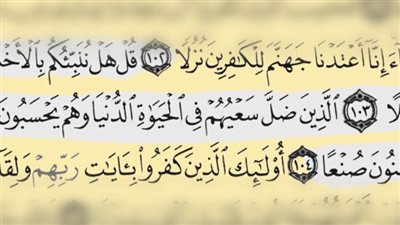 ءَ إِنَّآ أَعْتَدْنَا جَهَنَّمَ لِلْكَٰفِرِينَ نُزُلًا ١٠٢ قُلْ هَلْ نُنَبِّئُكُم بِٱلْأَخْ
لًا ١٠٣ ٱلَّذِينَ ضَلَّ سَعْيُهُمْ فِى ٱلْحَيَوٰةِ ٱلدُّنْيَا وَهُمْ يَحْسَبُونَ
نُونَ صُنْعًا ١٠٤ أُو۟لَٰٓئِكَ ٱلَّذِينَ كَفَرُوا۟ بِـَٔايَٰتِ رَبِّهِمْ وَلِقَا